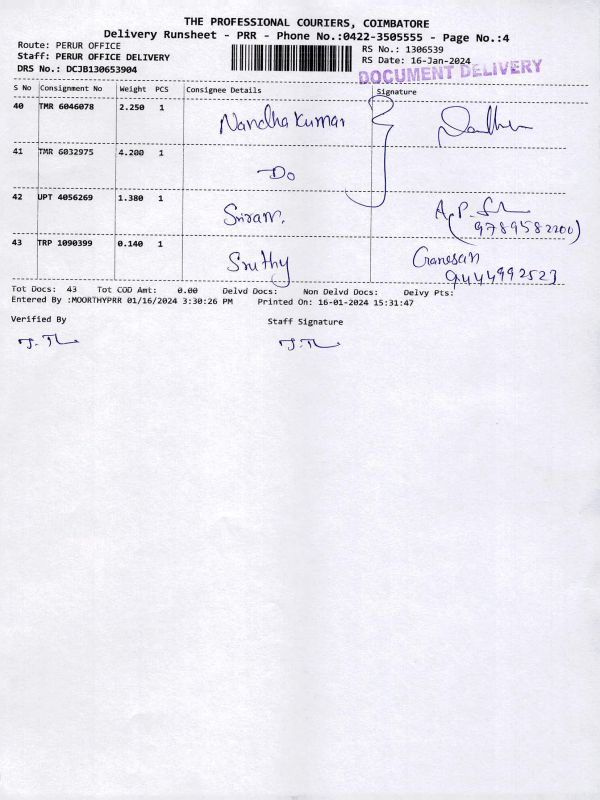 THE PROFESSIONAL COURIERS, COIMBATORE
Delivery Runsheet - PRR - Phone No.:0422-3505555 - Page No.:4
Route: PERUR OFFICE
Staff: PERUR OFFICE DELIVERY
DRS No.: DCJB130653904
RS No.: 1306539
RS Date: 16-Jan-2024
DOCUMENT DELIVERY
S No Consignment No Weight PCS Consignee Details Signature
40 TMR 6046078 2.250 1 Nandha Kumar
41 TMR 6032975 4.200 1 Do
42 UPT 4056269 1.380 1 Sriram. A.P.
(9789582200)
43 TRP 1090399 0.140 1 Sruthy Ganesan
9444992523
Tot Docs: 43 Tot COD Amt: 0.00 Delvd Docs: Non Delvd Docs: Delvy Pts:
Entered By :MOORTHYPRR 01/16/2024 3:30:26 PM Printed On: 16-01-2024 15:31:47
Verified By Staff Signature